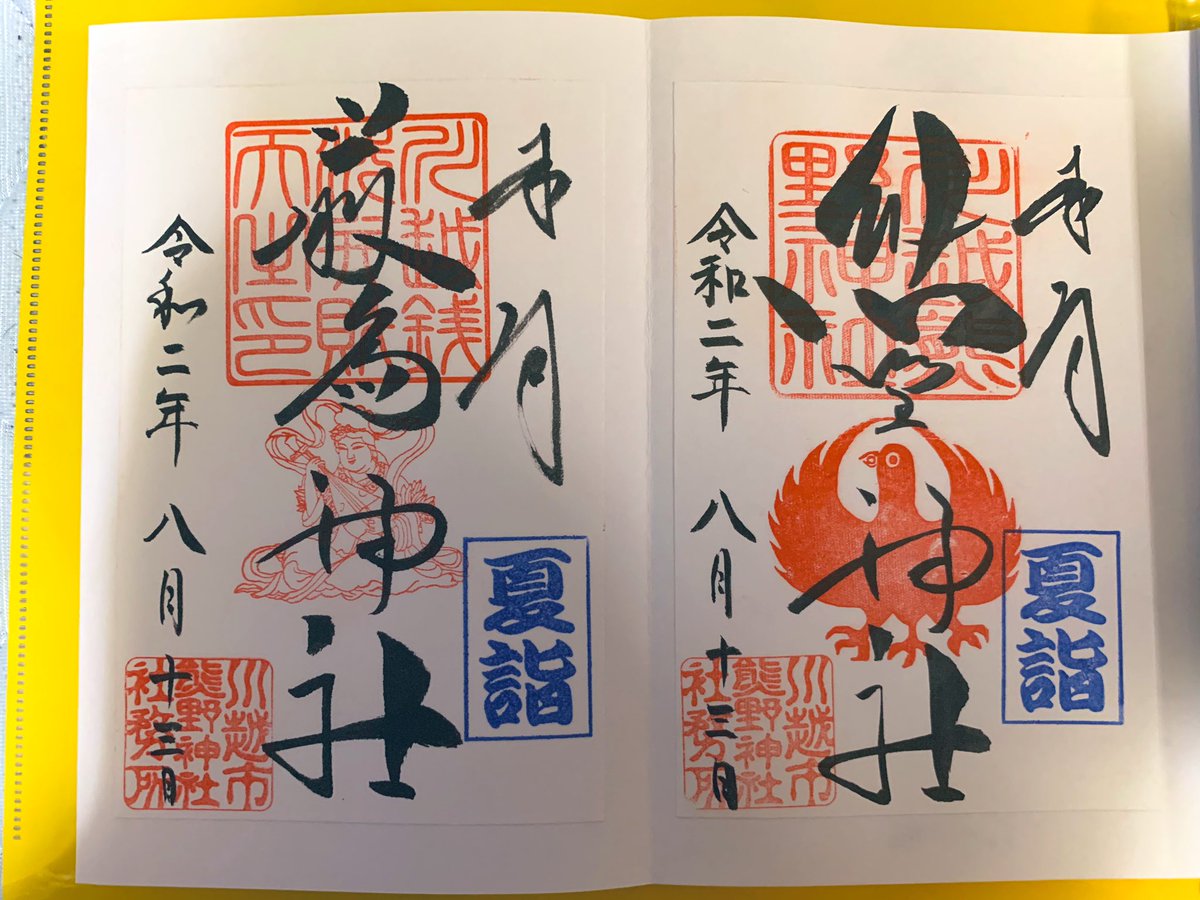 奉拝
川越熊
野神社
熊野神社
令和二年八月十三日
夏詣
川越市
熊野神社
社務所
奉拝
川越銭
洗弁財
天之印
厳島神社
令和二年八月十三日
夏詣
川越市
熊野神社
社務所